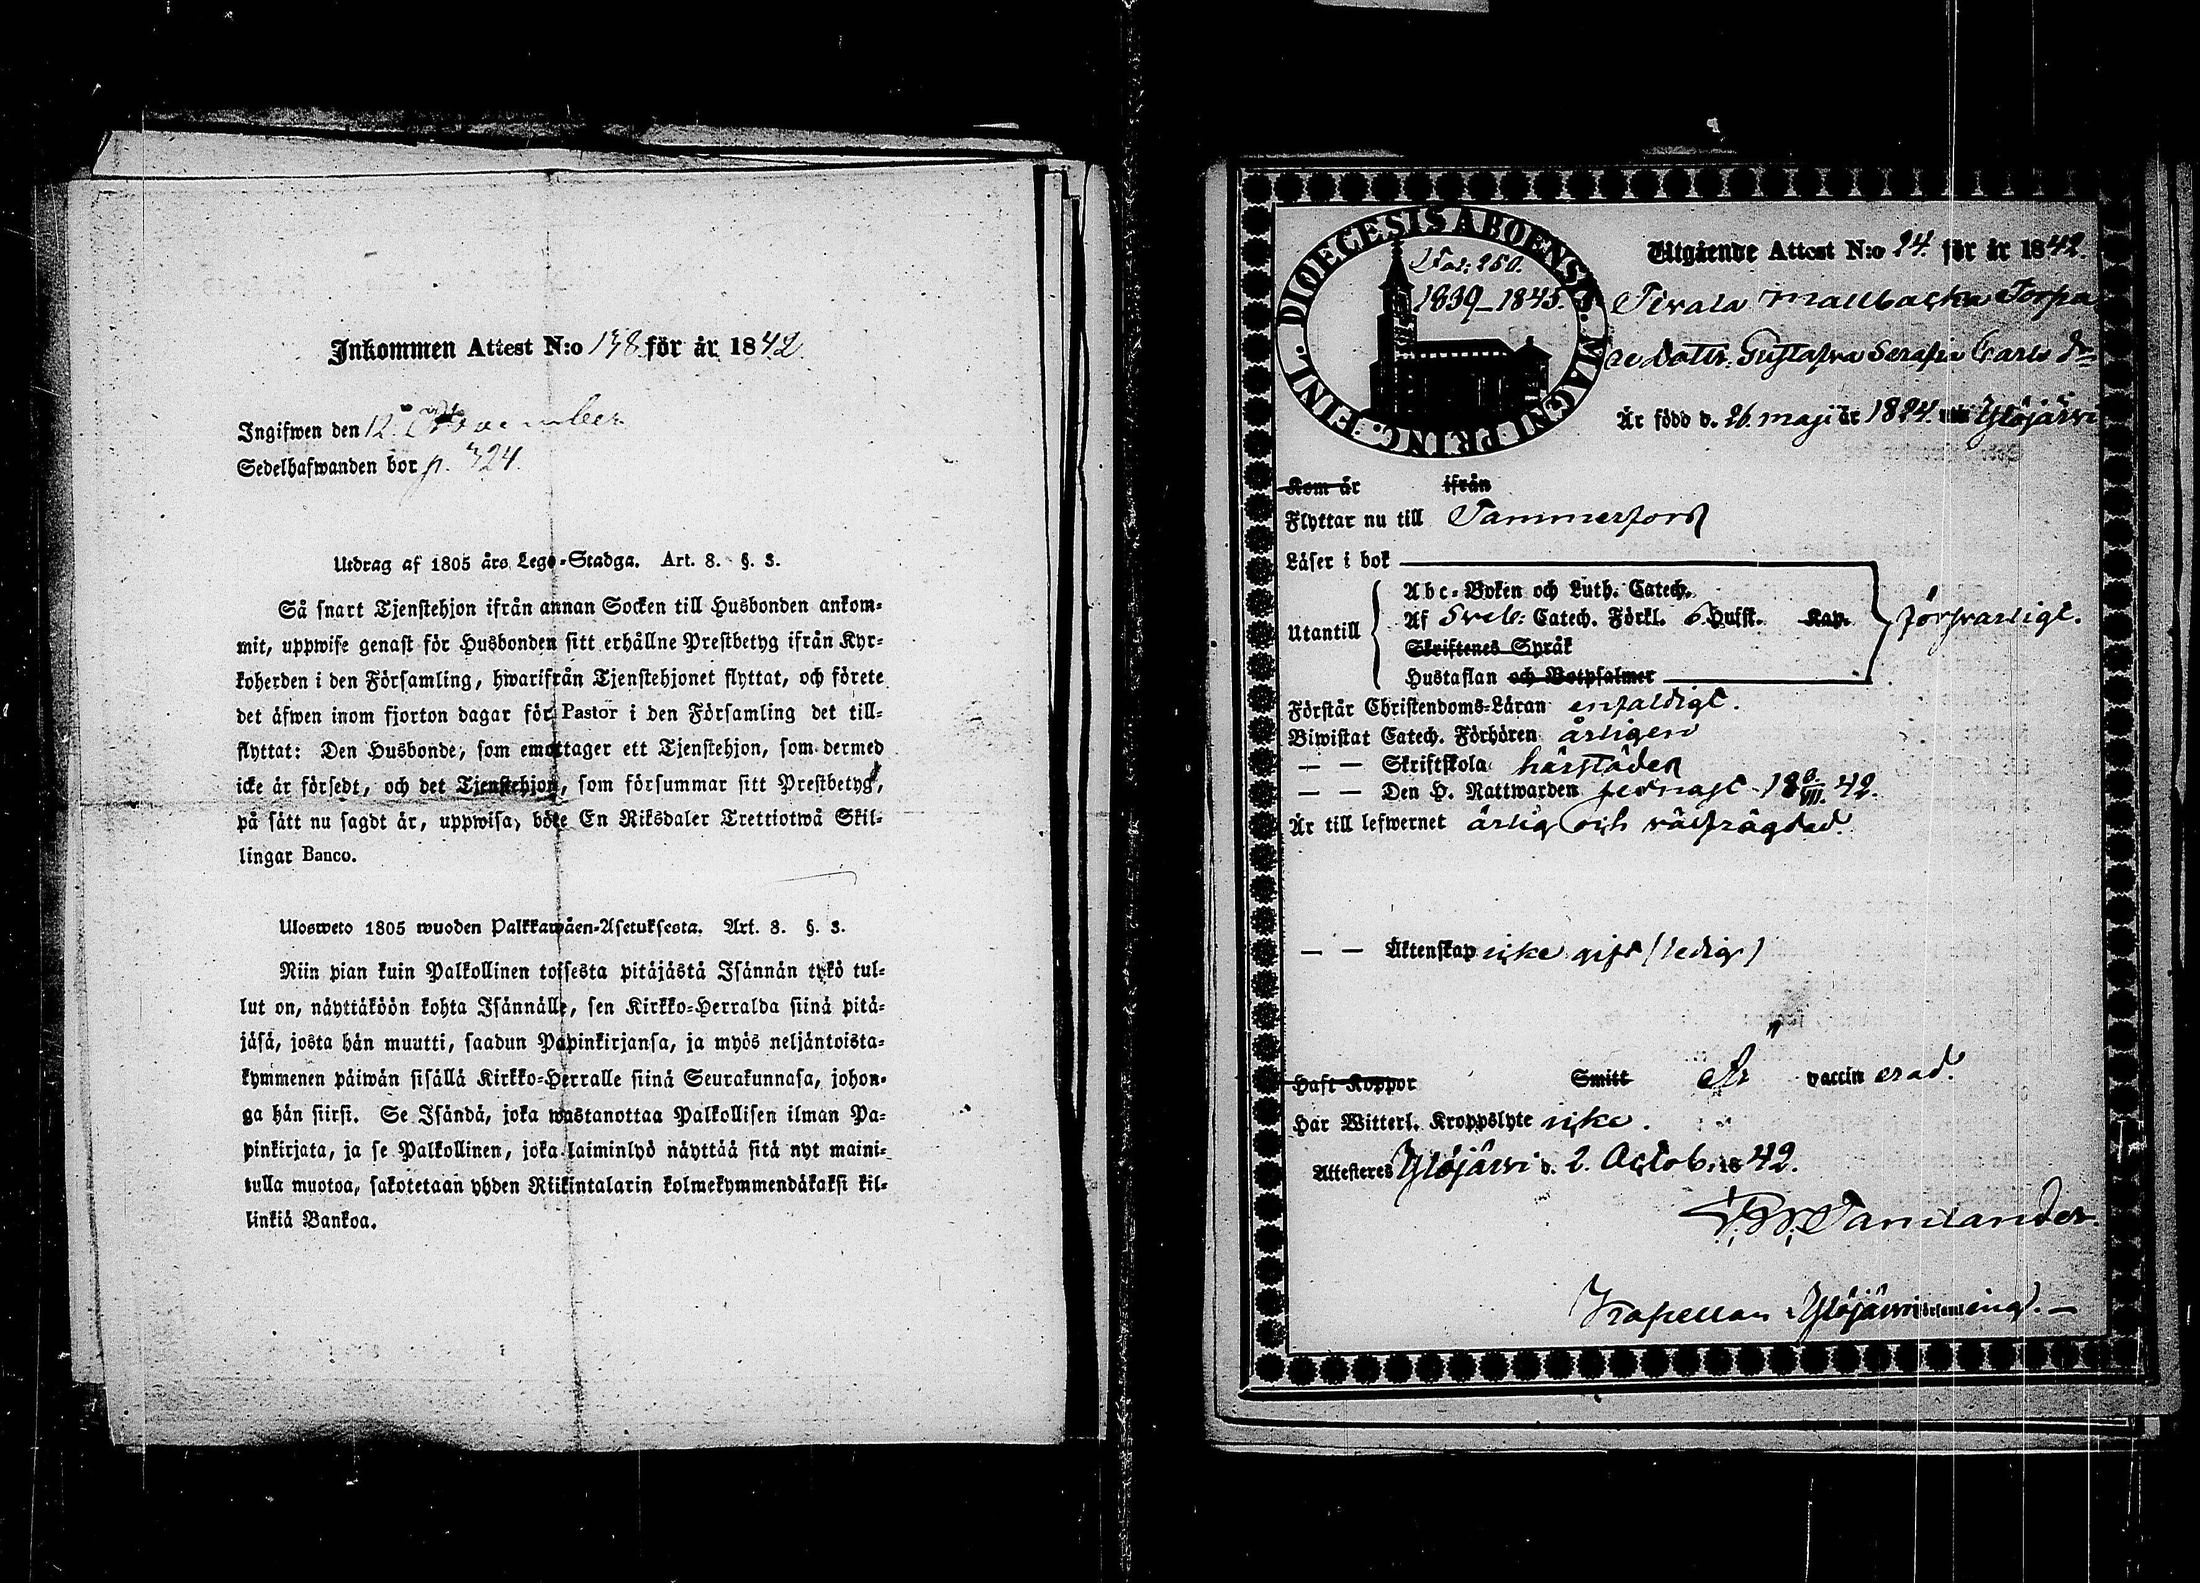 Inkommen Attest N:o 138 för år 1842.
Ingifwen den 12 November
Sedelhafwanden bor p. 324.
Utdrag af 1805 års Lego-Stadga. Art. 8. §. 3.
Så snart Tjenstehjon ifrån annan Socken till Husbonden ankom-
mit, uppwise genast för Husbonden sitt erhållne Prestbetyg ifrån Kyr-
koherden i den Församling, hwarifrån Tjenstehjonet flyttat, och förete
det äfwen inom fjorton dagar för Pastor i den Församling det till-
flyttat: Den Husbonde, som emottager ett Tjenstehjon, som dermed
icke är försedt, och det Tjenstehjon, som försummar sitt Prestbetyg,
på sätt nu sagdt är, uppwisa, böte En Riksdaler Trettiotwå Skil-
lingar Banco.
Ulosweto 1805 wuoden Palkkawäen-Asetuksesta. Art. 8. §. 3.
Niin pian kuin Palkollinen toisesta pitäjästä Isännän tykö tul-
lut on, näyttäköön kohta Isännälle, sen Kirkko-Herralda siinä pitä-
jäsä, josta hän muutti, saadun Papinkirjansa, ja myös neljäntoista-
kymmenen päiwän sisällä Kirkko-Herralle siinä Seurakunnasa, johon-
ga hän siirsi. Se Isändä, joka wastanottaa Palkollisen ilman Pa-
pinkirjata, ja se Palkollinen, joka laiminlyö näyttää sitä nyt maini-
tulla muotoa, sakotetaan yhden Riikintalarin kolmekymmendäkaksi kil-
linkiä Bankoa.
DIOECESIS ABOENSIS. MAGNI PRINC. FINL.
Fol: 250.
1839-1845.
Utgående Attest N:o 24. för år 1842.
Tirala Mallbacka Torpa
re dotter Gustafva Serafia Carls dr
Är född d. 26 maji år 1824. Ylöjärvi
Kom år ifrån
Flyttar nu till Tammerfors
Läser i bok
Utantill
Abc-Boken och Luth. Catech.
Af Sveb: Catech. Förkl. 6 Hufst. Kap.
Skriftenes Språk
Hustaflan och Botpsalmer
försvarligt.
Förstår Christendoms-Läran enfaldigt.
Biwistat Catech. Förhören årligen
— — Skriftskola härstädes
— — Den H. Nattwarden senast 18 VII. 42.
Är till lefwernet ärlig och välfrägdad.
— — Äktenskap icke gift (ledig)
Haft Koppor Smitt Är vaccinerad.
Har Witterl. Kroppslyte icke.
Attesteras Ylöjärvi d. 2. Octob. 1842.
Tamlander.
Kapellan i Ylöjärvi församling. —